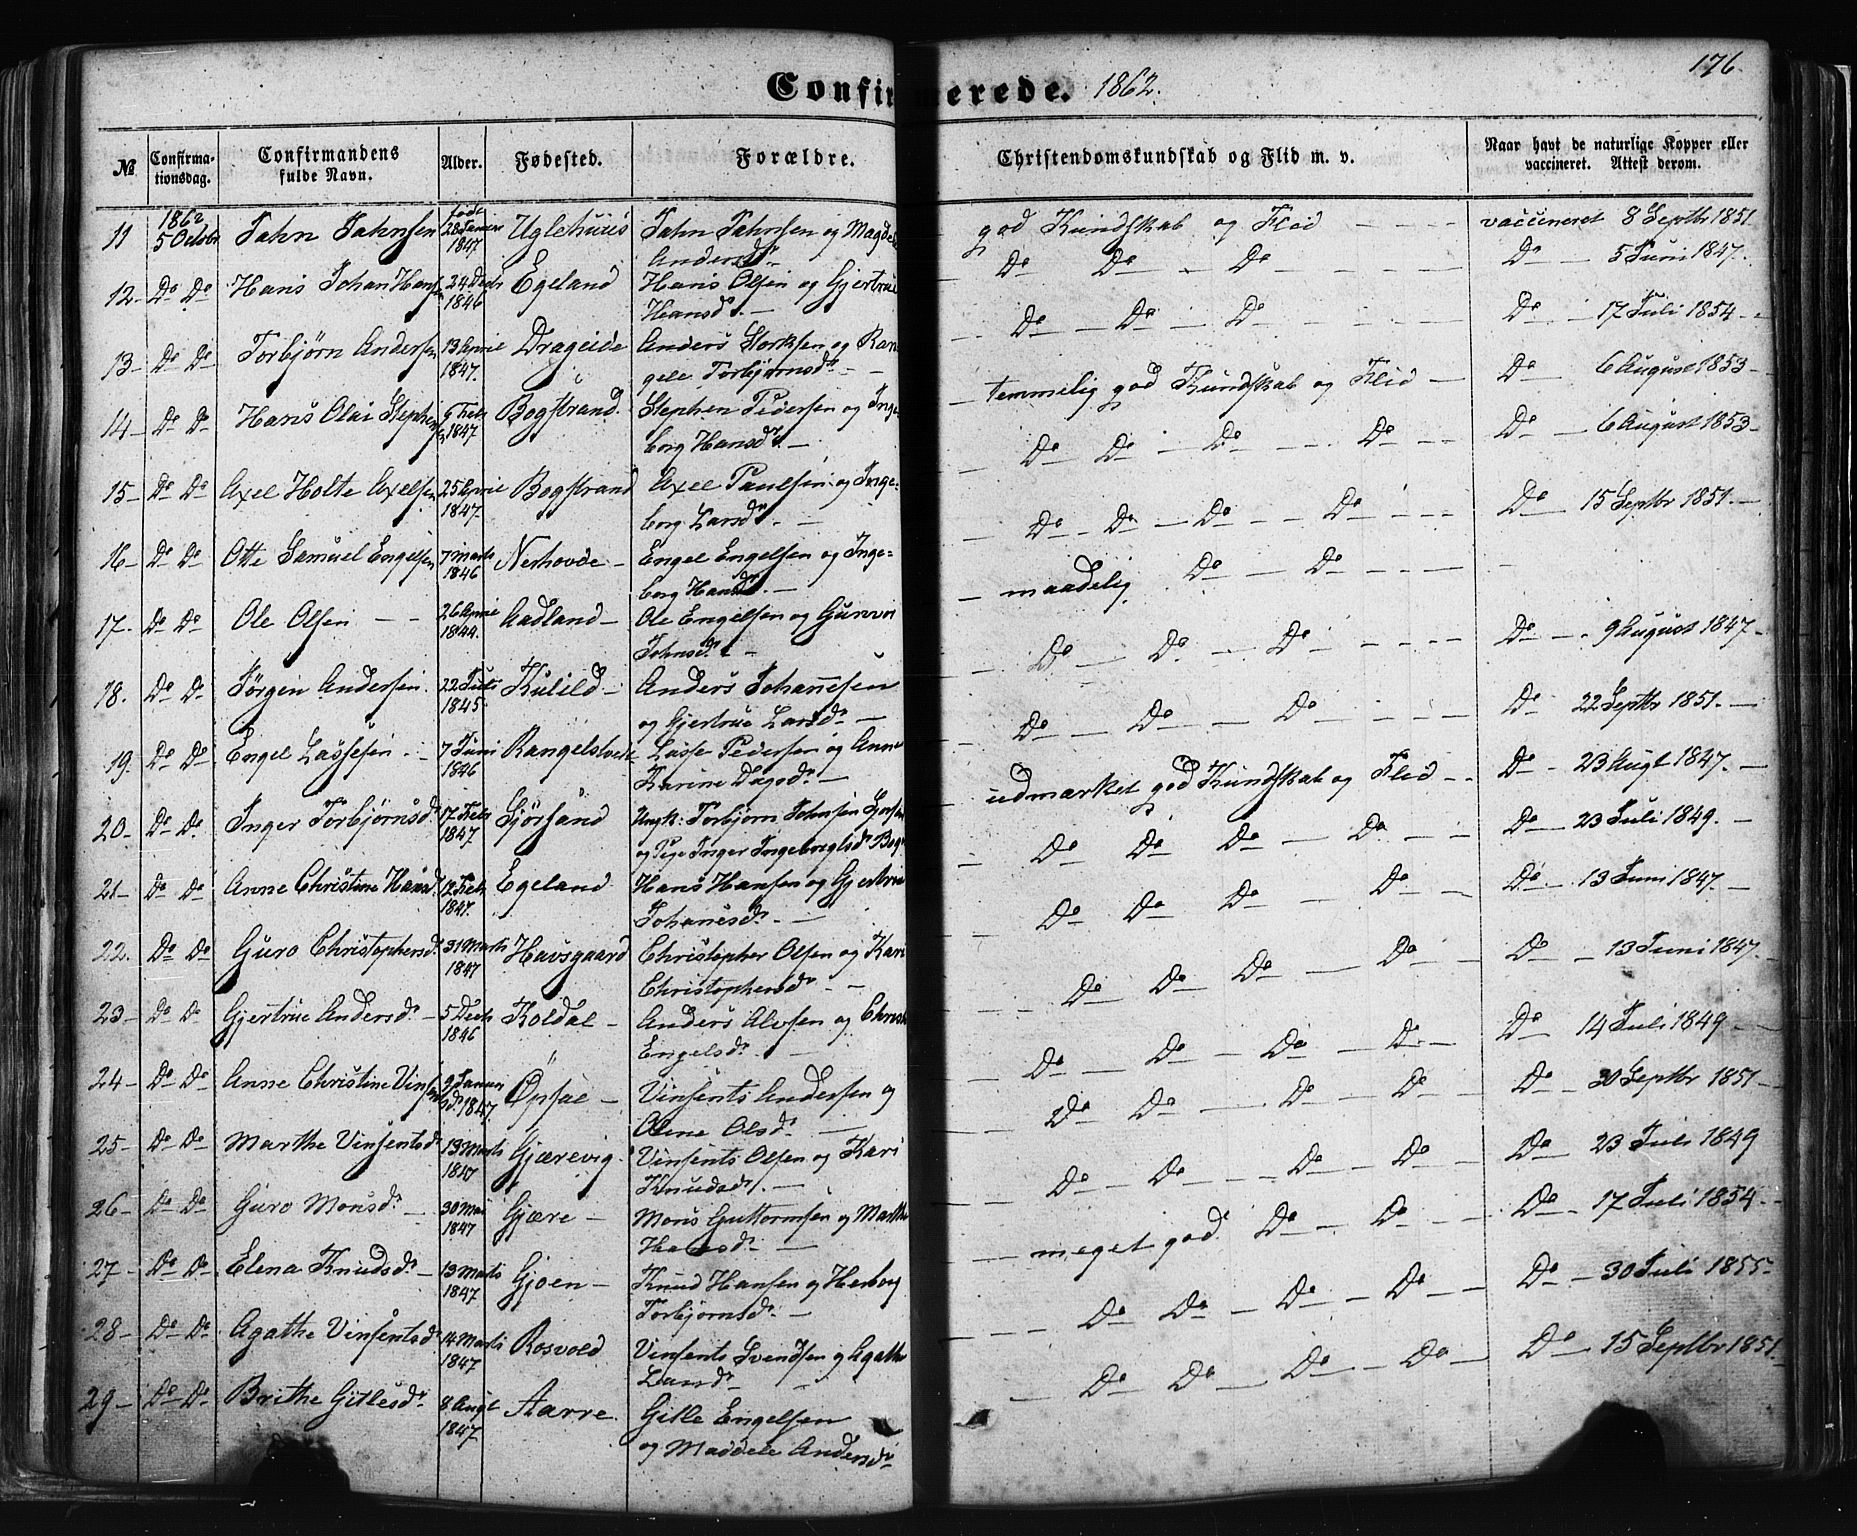 176.
Confirmerede. 1862.
№ Confirma-tionsdag. Confirmandens fulde Navn. Alder. Fødested. Forældre. Christendomskundskab og Flid m. v. Naar havt de naturlige Kopper eller vaccineret. Attest derom.
11 1862 5 Octobr Jahn Jahnsen født 28 Januar 1847 Uglehuus Jahn Jahnsen og Magdele god Kundskab og Flid - - - - vaccineret 8 Septbr 1851
Andersdr
12 - Do Do Hans Johan Hansen 24 Decbr 1846 Egeland Hans Olsen og Gjertrue Do Do - Do - - - - Do - 5 Juni 1847.
Hansdr. -
13 - Do Do Torbjørn Andersen 13 April 1847. Drageide Anders Størksen og Ran- Do - Do - Do - - - - Do - 17 Juli 1854 -
gele Torbjørnsdr -
14 - Do Do Hans Olai Stephensen 9 Febr 1847 Bogstrand. Stephen Pedersen og Inge- temmelig god Kundskab og Flid - Do - 6 August 1853 -
borg Hansdr. -
15 - Do Do Axel Holte Axelsen 25 April 1847. Bogstrand Axel Paulsen og Inge- Do Do - Do - - Do - - Do - 6 August 1853 -
borg Larsdr. -
16 - Do Do Otte Samuel Engelsen 7 Marts 1846 Nerhovde - Engel Engelsen og Inge- Do - Do - Do - - Do - - - Do - 15 Septbr 1851. -
borg Hansdr. -
17. Do Do Ole Olsen - - 26 April 1844. Aadland - Ole Engelsen og Gunvor maadelig Do - Do - - -
Johnsdr -
18. Do Do Jørgen Andersen. 22 Juli 1845 Kulild - Anders Johannesen Do - Do - Do - - - - Do - 9 August 1847 -
og Gjertrue Larsdr -
19. Do Do Engel Lassesen - 7 Juni 1846 Rangelstvedt Lasse Pedersen og Anne Do - Do - Do - - - - Do - 22 Septbr 1851. -
Karine Dagsdr -
20 - Do Do Inger Torbjørnsdr 17 Febr 1847 Sjørsand Ungk: Torbjørn Johnsen udmærket god Kundskab og Flid - - Do - 23 Augt 1847. -
og Pige Inger Ingebrigtsdr
21 - Do Do Anne Christine Hansdr 12 Febr 1847. Egeland Hans Hansen og Gjertrue Do Do Do - Do - - Do - 23 Juli 1849. -
Johanesdr. -
22. Do Do Guro Christophersdr 31 Marts 1847 Havsgaard Christopher Olsen og Kari Do Do Do - Do - Do - 13 Juni 1847. -
Christophersdr -
23 - Do Do Gjertrue Andersdr - 5 Decbr 1846 Koldal - Anders Alvsen og Do Do Do - Do - Do - 13 Juni 1847.
Engelsdr. -
24 - Do Do Anne Christine Vinsentsdr 9 Januar 1847 Opsal - Vinsents Andersen og Do - Do - Do - Do - Do - 14 Juli 1849 -
Olene Olsdr. -
25 - Do Do Marthe Vinsentsdr 13 Marts 1847 Gjærevig - Vinsents Olsen og Kari Do Do - Do - Do - Do - 30 Septbr 1851 -
Knudsdr. -
26 - Do Do Guro Monsdr - 30 Mai 1847 Gjære - Mons Guttormsen og Marthe Do - Do - Do - Do - Do - 23 Juli 1849
Hansdr. -
27 - Do Do Elena Knudsdr. - 13 Marts 1847 Gjøen - Knud Hansen og Herborg meget god Do - Do - - Do - 17 Juli 1854 -
Torbjørnsdr. -
28 - Do Do Agathe Vinsentsdr 14 Marts 1847 Rosvold Vinsents Svendsen og Agathe Do Do - Do - Do - Do - 30 Juli 1855 -
Larsdr -
29 - Do Do Brithe Gitlesdr 8 Augt 1847 Aarre. Gitle Engelsen Do Do - Do - Do - Do - 15 Septbr 1851.
og Maddele Andersdr